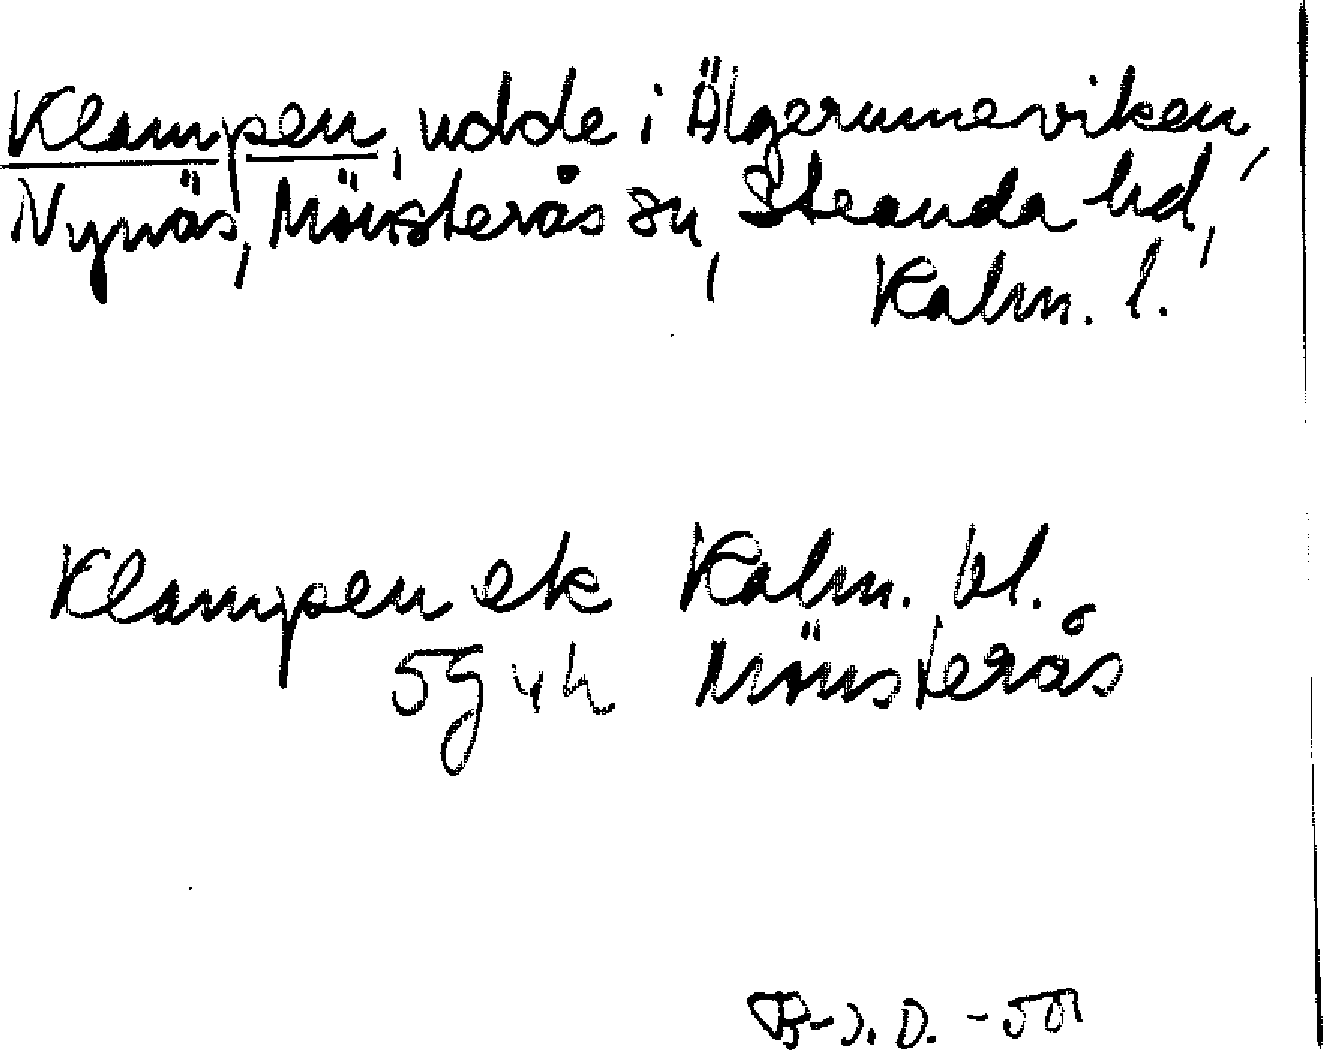 Klampen, udde i Älgerumsviken,
Nynäs, Mönsterås sn, Stranda hd,
Kalm. l.
Klampen ek Kalm. bl.
5g4h Mönsterås